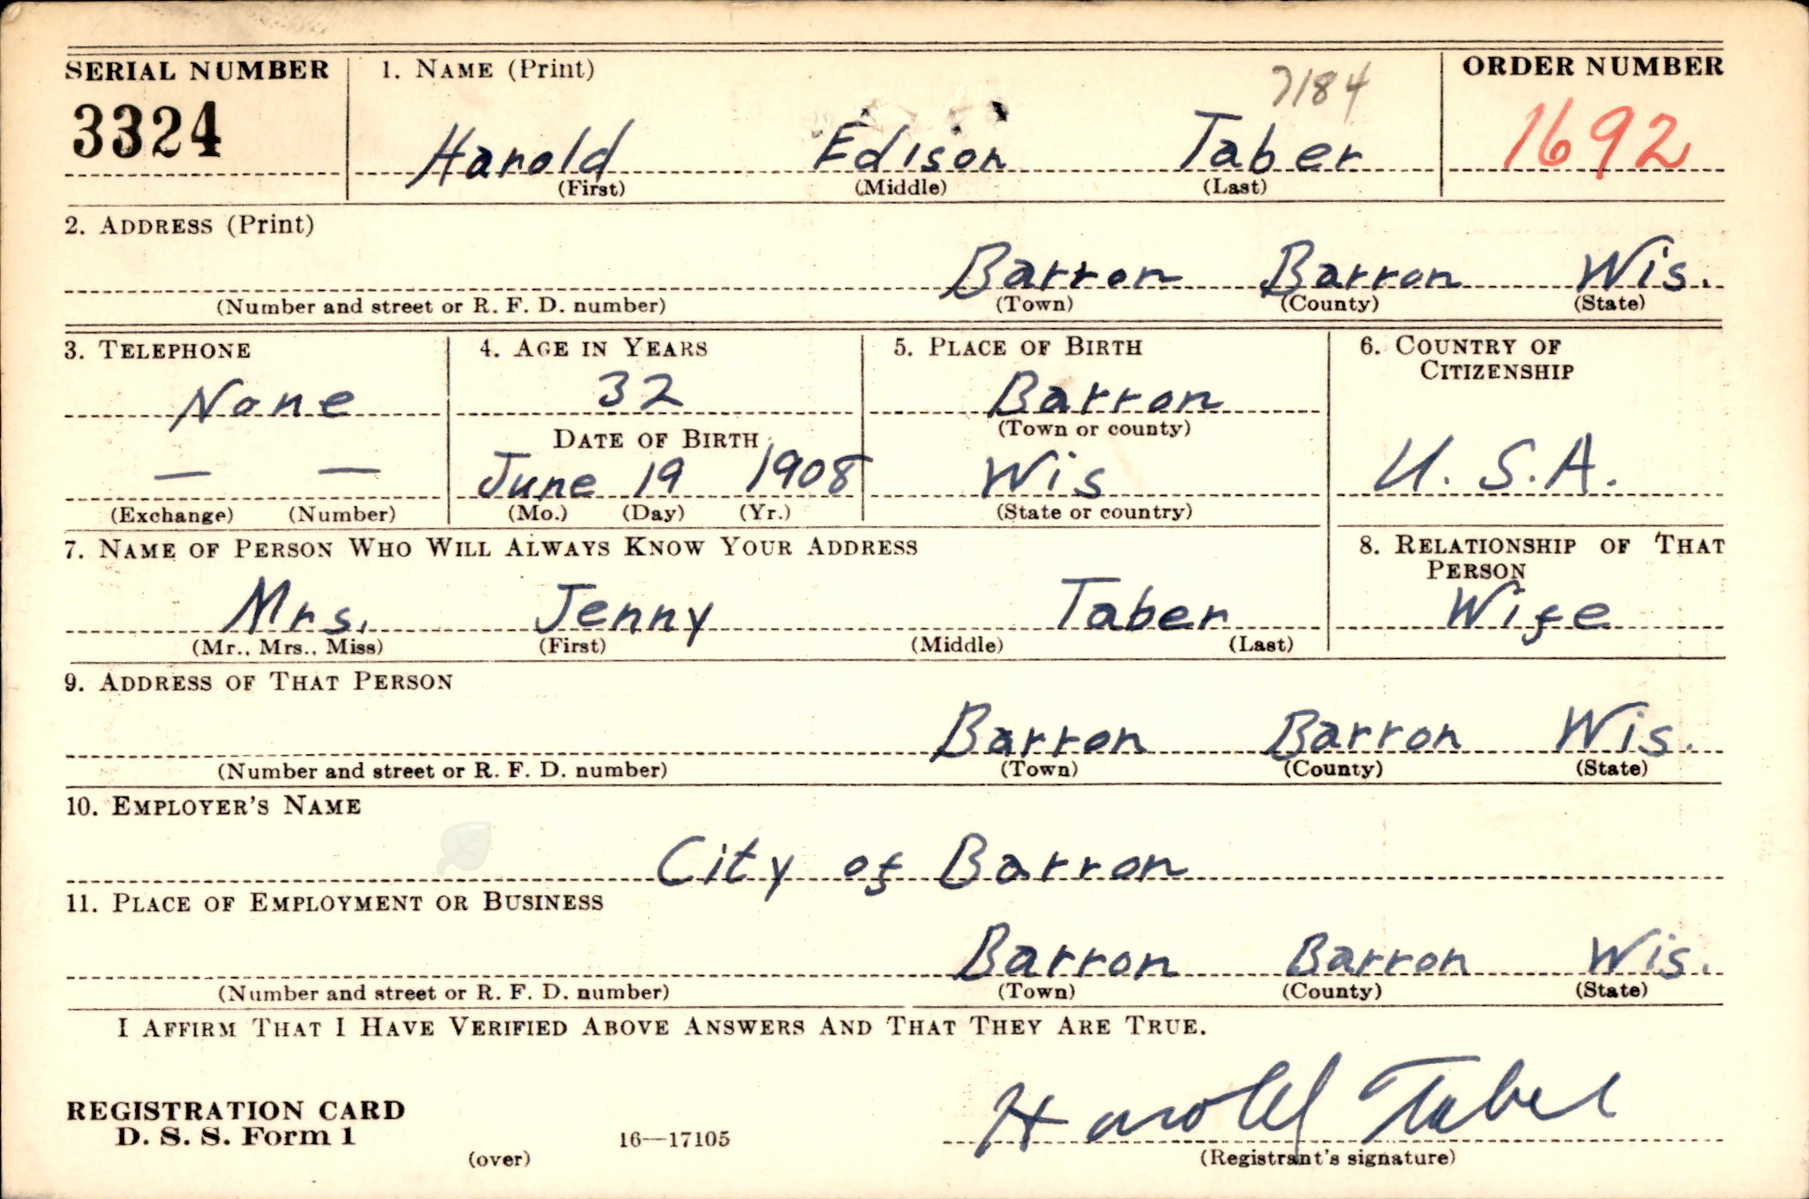 SERIAL NUMBER
3324
1. NAME (Print)
7184
ORDER NUMBER
1692
Harold Edison Taber
(First) (Middle) (Last)
2. ADDRESS (Print)
Barron Barron Wis.
(Number and street or R. F. D. number) (Town) (County) (State)
3. TELEPHONE
None
— —
(Exchange) (Number)
4. AGE IN YEARS
32
DATE OF BIRTH
June 19 1908
(Mo.) (Day) (Yr.)
5. PLACE OF BIRTH
Barron
(Town or county)
Wis
(State or country)
6. COUNTRY OF
CITIZENSHIP
U. S. A.
7. NAME OF PERSON WHO WILL ALWAYS KNOW YOUR ADDRESS
Mrs. Jenny Taber
(Mr., Mrs., Miss) (First) (Middle) (Last)
8. RELATIONSHIP OF THAT
PERSON
Wife
9. ADDRESS OF THAT PERSON
Barron Barron Wis.
(Number and street or R. F. D. number) (Town) (County) (State)
10. EMPLOYER'S NAME
City of Barron
11. PLACE OF EMPLOYMENT OR BUSINESS
Barron Barron Wis.
(Number and street or R. F. D. number) (Town) (County) (State)
I AFFIRM THAT I HAVE VERIFIED ABOVE ANSWERS AND THAT THEY ARE TRUE.
REGISTRATION CARD
D. S. S. Form 1
(over)
16—17105
Harold Taber
(Registrant's signature)